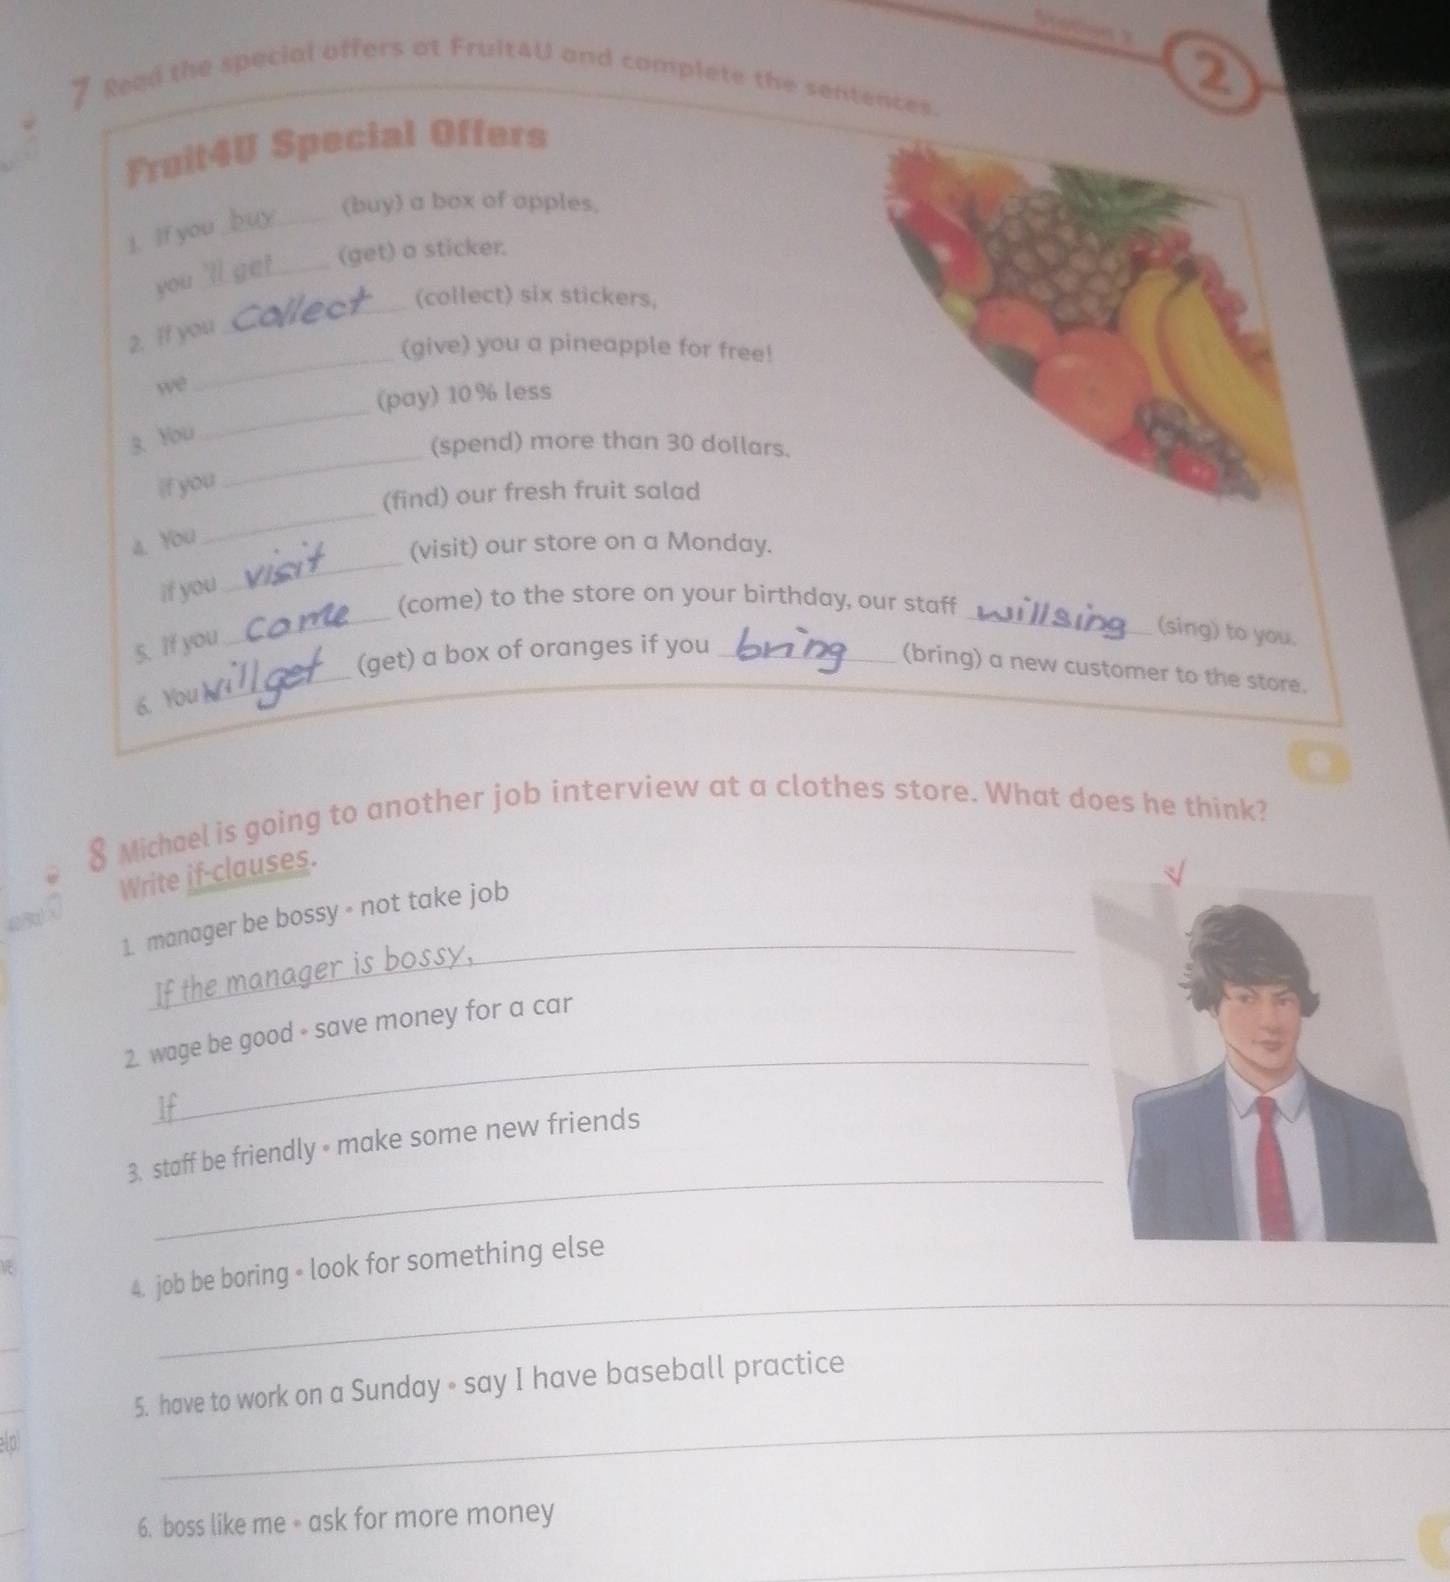 2
7 Read the special offers at Fruit4U and complete the sentences.
Fruit4U Special Offers
1. If you buy (buy) a box of apples,
you 'll get (get) a sticker.
2. If you collect (collect) six stickers,
we (give) you a pineapple for free!
3. You (pay) 10% less
if you (spend) more than 30 dollars.
4. You (find) our fresh fruit salad
if you visit (visit) our store on a Monday.
5. If you come (come) to the store on your birthday, our staff will sing (sing) to you.
6. You will get (get) a box of oranges if you bring (bring) a new customer to the store.
8 Michael is going to another job interview at a clothes store. What does he think?
Write if-clauses.
1. manager be bossy • not take job
If the manager is bossy,
2. wage be good • save money for a car
If
3. staff be friendly • make some new friends
4. job be boring • look for something else
5. have to work on a Sunday • say I have baseball practice
6. boss like me • ask for more money